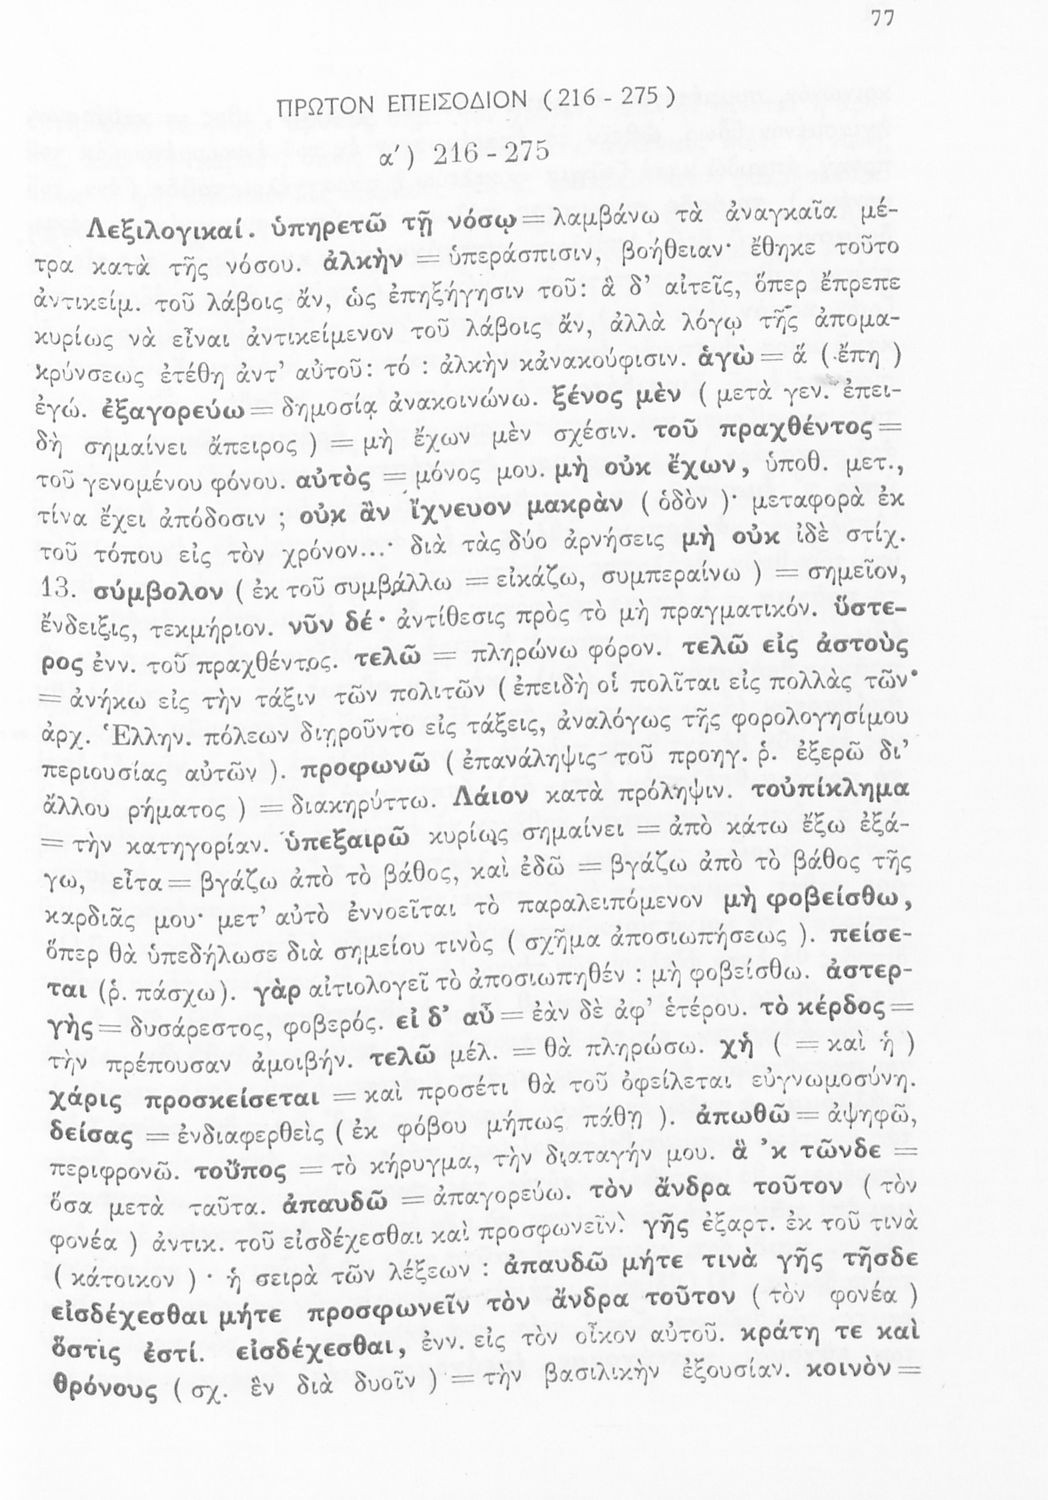 77
ΠΡΩΤΟΝ ΕΠΕΙΣΟΔΙΟΝ ( 216 - 275 )
α΄ ) 216 - 275
Λεξιλογικαί. ὑπηρετῶ τῇ νόσῳ = λαμβάνω τὰ ἀναγκαῖα μέ-
τρα κατὰ τῆς νόσου. ἀλκὴν = ὑπεράσπισιν, βοήθειαν· ἔθηκε τοῦτο
ἀντικείμ. τοῦ λάβοις ἄν, ὡς ἐπηξήγησιν τοῦ: ἃ δ' αἰτεῖς, ὅπερ ἔπρεπε
κυρίως νὰ εἶναι ἀντικείμενον τοῦ λάβοις ἄν, ἀλλὰ λόγῳ τῆς ἀπομα-
κρύνσεως ἐτέθη ἀντ' αὐτοῦ: τό : ἀλκὴν κἀνακούφισιν. ἁγὼ = ἅ ( ἔπη )
ἐγώ. ἐξαγορεύω = δημοσίᾳ ἀνακοινώνω. ξένος μὲν ( μετὰ γεν. ἐπει-
δὴ σημαίνει ἄπειρος ) = μὴ ἔχων μὲν σχέσιν. τοῦ πραχθέντος =
τοῦ γενομένου φόνου. αὐτὸς = μόνος μου. μὴ οὐκ ἔχων, ὑποθ. μετ.,
τίνα ἔχει ἀπόδοσιν ; οὐκ ἂν ἴχνευον μακρὰν ( ὁδὸν )· μεταφορὰ ἐκ
τοῦ τόπου εἰς τὸν χρόνον...· διὰ τὰς δύο ἀρνήσεις μὴ οὐκ ἰδὲ στίχ.
13. σύμβολον ( ἐκ τοῦ συμβάλλω = εἰκάζω, συμπεραίνω ) = σημεῖον,
ἔνδειξις, τεκμήριον. νῦν δέ· ἀντίθεσις πρὸς τὸ μὴ πραγματικόν. ὕστε-
ρος ἐνν. τοῦ πραχθέντος. τελῶ = πληρώνω φόρον. τελῶ εἰς ἀστοὺς
= ἀνήκω εἰς τὴν τάξιν τῶν πολιτῶν ( ἐπειδὴ οἱ πολῖται εἰς πολλὰς τῶν
ἀρχ. Ἑλλην. πόλεων διῃροῦντο εἰς τάξεις, ἀναλόγως τῆς φορολογησίμου
περιουσίας αὐτῶν ). προφωνῶ ( ἐπανάληψις τοῦ προηγ. ῥ. ἐξερῶ δι'
ἄλλου ρήματος ) = διακηρύττω. Λάιον κατὰ πρόληψιν. τοὐπίκλημα
= τὴν κατηγορίαν. ὑπεξαιρῶ κυρίως σημαίνει = ἀπὸ κάτω ἔξω ἐξά-
γω, εἶτα = βγάζω ἀπὸ τὸ βάθος, καὶ ἐδῶ = βγάζω ἀπὸ τὸ βάθος τῆς
καρδιᾶς μου· μετ' αὐτὸ ἐννοεῖται τὸ παραλειπόμενον μὴ φοβείσθω,
ὅπερ θὰ ὑπεδήλωσε διὰ σημείου τινὸς ( σχῆμα ἀποσιωπήσεως ). πείσε-
ται (ῥ. πάσχω). γὰρ αἰτιολογεῖ τὸ ἀποσιωπηθέν : μὴ φοβείσθω. ἀστερ-
γὴς = δυσάρεστος, φοβερός. εἰ δ' αὖ = ἐὰν δὲ ἀφ' ἑτέρου. τὸ κέρδος =
τὴν πρέπουσαν ἀμοιβήν. τελῶ μέλ. = θὰ πληρώσω. χἡ ( = καὶ ἡ )
χάρις προσκείσεται = καὶ προσέτι θὰ τοῦ ὀφείλεται εὐγνωμοσύνη.
δείσας = ἐνδιαφερθεὶς ( ἐκ φόβου μήπως πάθῃ ). ἀπωθῶ = ἀψηφῶ,
περιφρονῶ. τοὔπος = τὸ κήρυγμα, τὴν διαταγήν μου. ἃ 'κ τῶνδε =
ὅσα μετὰ ταῦτα. ἀπαυδῶ = ἀπαγορεύω. τὸν ἄνδρα τοῦτον ( τὸν
φονέα ) ἀντικ. τοῦ εἰσδέχεσθαι καὶ προσφωνεῖν. γῆς ἐξαρτ. ἐκ τοῦ τινὰ
( κάτοικον ) · ἡ σειρὰ τῶν λέξεων : ἀπαυδῶ μήτε τινὰ γῆς τῆσδε
εἰσδέχεσθαι μήτε προσφωνεῖν τὸν ἄνδρα τοῦτον ( τὸν φονέα )
ὅστις ἐστί. εἰσδέχεσθαι, ἐνν. εἰς τὸν οἶκον αὐτοῦ. κράτη τε καὶ
θρόνους ( σχ. ἓν διὰ δυοῖν ) = τὴν βασιλικὴν ἐξουσίαν. κοινὸν =